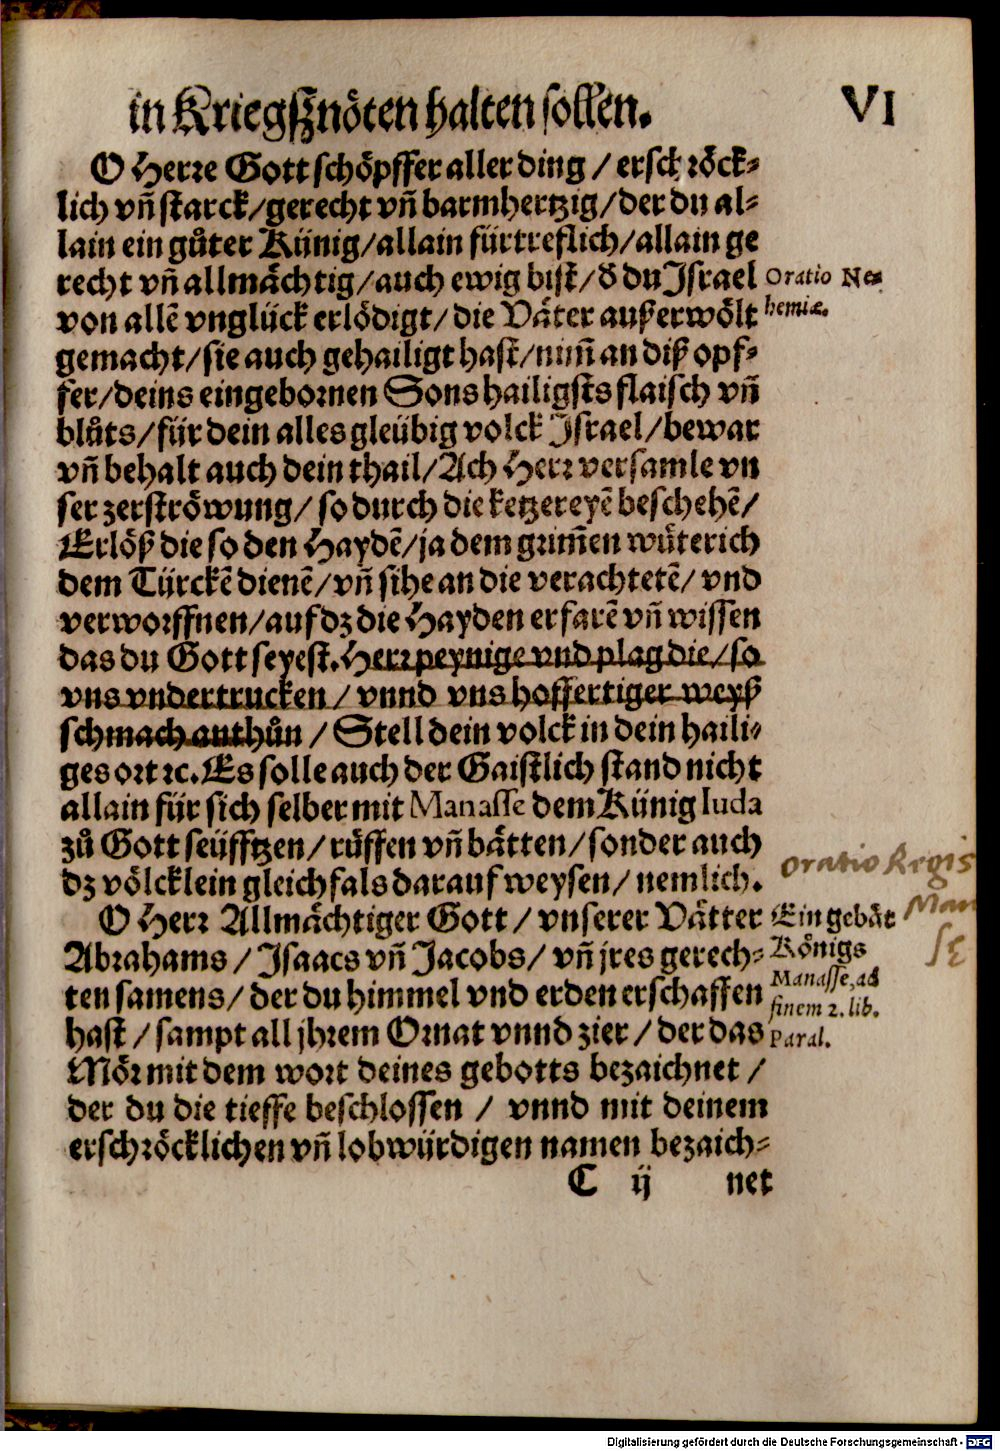 in Kriegßnöten halten sollen. VI
O Herre Gott schöpffer aller ding / erschröck-
lich vñ starck/gerecht vñ barmhertzig/der du al-
lain ein gůter Künig/allain fürtreflich/allain ge
recht vñ allmächtig/auch ewig bist/d̄ du Israel
von allẽ vnglück erlödigt/die Väter außerwölt
gemacht/sie auch gehailigt hast/nim̃ an diß opf-
fer/deins eingebornen Sons hailigsts flaisch vñ
blůts/für dein alles gleübig volck Israel/bewar
vñ behalt auch dein thail/Ach Herr versamle vn
ser zerströwung/so durch die ketzereyẽ beschehẽ/
Erlöß die so den Haydẽ/ja dem grim̃en wüterich
dem Türckẽ dienẽ/vñ sihe an die verachtetẽ/vnd
verworffnen/auf dz die Hayden erfarẽ vñ wissen
das du Gott seyest. Herr peynige vnd plag die/so
vns vndertrucken/vnnd vns hoffertiger weyß
schmach anthůn / Stell dein volck in dein haili-
ges ort ꝛc. Es solle auch der Gaistlich stand nicht
allain für sich selber mit Manasse dem Künig Iuda
zů Gott seüfftzen/rüffen vñ bätten/sonder auch
dz völcklein gleichfals darauf weysen/nemlich.
O Herr Allmächtiger Gott / vnserer Vätter
Abrahams / Isaacs vñ Jacobs/ vñ jres gerech-
ten samens/ der du himmel vnd erden erschaffen
hast / sampt all jhrem Ornat vnnd zier / der das
Mör mit dem wort deines gebotts bezaichnet /
der du die tieffe beschlossen / vnnd mit deinem
erschröcklichen vñ lobwürdigen namen bezaich-
C ij net
Oratio Ne-
hemiæ.
oratio Regis
Man
sE
Ein gebät
Königs
Manasse, ad
finem 2. lib.
Paral.
Digitalisierung gefördert durch die Deutsche Forschungsgemeinschaft - DFG